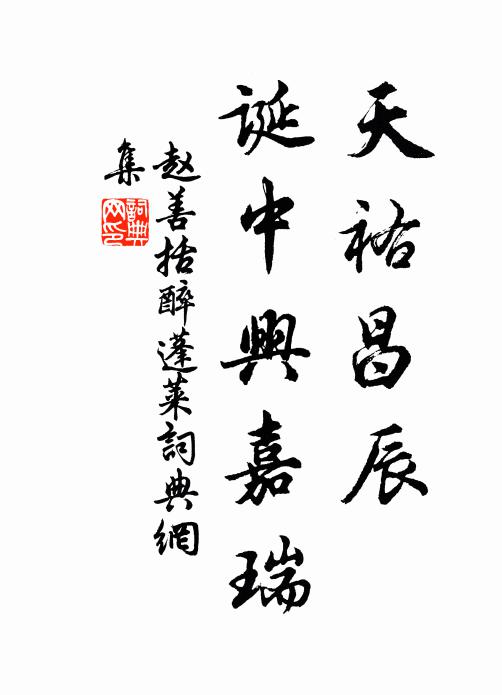 天祐昌辰
誕中興嘉瑞
赵善括醉蓬莱詞典網
集
詞典
网印